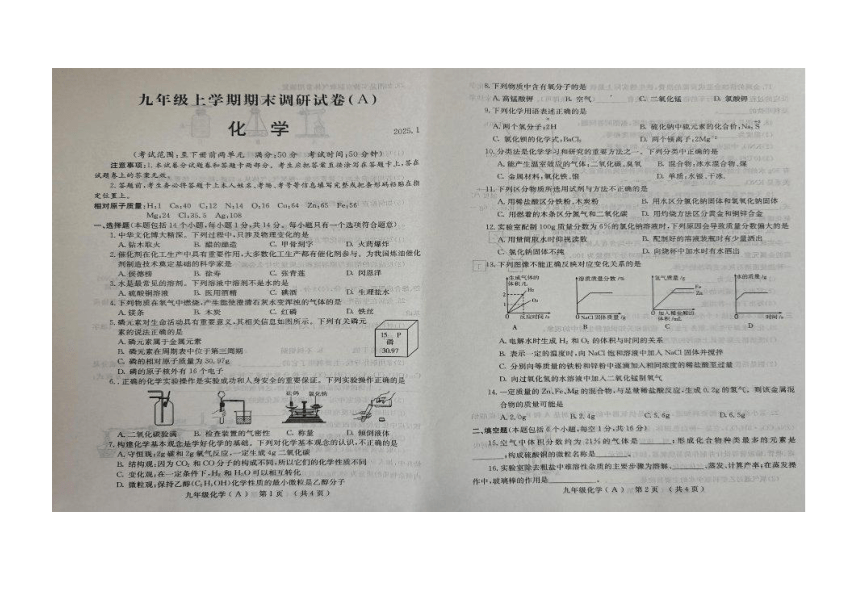 九年级上学期期末调研试卷(A)
化 学
2025.1
(考试范围:至下册前两单元 满分:50分 考试时间:50分钟)
注意事项:1.本试卷分试题卷和答题卡两部分。考生应把答案直接涂写在答题卡上,答在
试题卷上的答案无效。
2.答题前,考生务必将答题卡上本人姓名、考场、考号等信息填写完整或把条形码粘贴在指
定位置上。
相对原子质量:H:1 Ca:40 C:12 N:14 O:16 Cu:64 Zn:65 Fe:56
Mg:24 Cl:35.5 Ag:108
一、选择题(本题包括14个小题,每小题1分,共14分。每小题只有一个选项符合题意)
1.中华文化博大精深。下列过程中,只涉及物理变化的是
A.钻木取火 B.醋的酿造 C.甲骨刻字 D.火药爆炸
2.催化剂在化工生产中具有重要作用,大多数化工生产都有催化剂参与。为我国炼油催化
剂制造技术奠定基础的科学家是
A.侯德榜 B.徐寿 C.张青莲 D.闵恩泽
3.水是最常见的溶剂。下列溶液中溶剂不是水的是
A.硫酸铜溶液 B.医用酒精 C.碘酒 D.生理盐水
4.下列物质在氧气中燃烧,产生能使澄清石灰水变浑浊的气体的是
A.镁条 B.木炭 C.红磷 D.铁丝
5.磷元素对生命活动具有重要意义,其相关信息如图所示。下列有关磷元
素的说法正确的是
A.磷元素属于金属元素
B.磷元素在周期表中位于第三周期
C.磷的相对原子质量为30.97g
D.磷的原子核外有16个电子
15 P
磷
30.97
6.正确的化学实验操作是实验成功和人身安全的重要保证。下列实验操作正确的是
砝码 氯化钠
A.二氧化碳验满 B.检查装置的气密性 C.称量 D.倾倒液体
7.构建化学基本观念是学好化学的基础。下列对化学基本观念的认识,不正确的是
A.守恒观:2g碳和2g氧气反应,一定生成4g二氧化碳
B.结构观:因为CO₂和CO分子的构成不同,所以它们的化学性质不同
C.变化观:在一定条件下,H₂和H₂O可以相互转化
D.微粒观:保持乙醇(C₂H₅OH)化学性质的最小微粒是乙醇分子
九年级化学(A) 第1页 (共4页)
8.下列物质中含有氧分子的是
A.高锰酸钾 B.空气 C.二氧化锰 D.氯酸钾
9.下列化学用语表述正确的是
A.两个氢分子:2H
B.硫化钠中硫元素的化合价:Na₂S
C.氯化钡的化学式:BaCl₂ D.两个镁离子:2Mg
10.分类法是化学学习和研究的重要方法之一。下列分类中正确的是
A.能产生温室效应的气体:二氧化碳、臭氧 B.混合物:冰水混合物、煤
C.金属材料:氧化铁、铜 D.单质:水银、干冰
11.下列区分物质所选用试剂与方法不正确的是
A.用稀盐酸区分铁粉、木炭粉 B.用水区分氯化钠固体和氢氧化钠固体
C.用燃着的木条区分氮气和二氧化碳 D.用灼烧方法区分黄金和铜锌合金
12.实验室配制100g质量分数为6%的氯化钠溶液时,下列原因会导致质量分数偏大的是
A.用量筒取水时仰视读数 B.配制好的溶液装瓶时有少量洒出
C.氯化钠固体不纯 D.向烧杯中加水时有水洒出
13.下列图像不能正确反映对应变化关系的是
生成气体的
体积/L
2
1
H₂
O₂
0 反应时间/s
A
溶质质量分数/%
0 NaCl固体质量/g
B
氢气质量/g
Fe
Zn
0 加入稀盐酸的
体积/mL
C
水的质量/g
0 时间/s
D
A.电解水时生成H₂和O₂的体积与时间的关系
B.表示一定的温度时,向NaCl饱和溶液中加入NaCl固体并搅拌
C.分别向等质量的铁粉和锌粉中逐滴加入相同浓度的稀盐酸至过量
D.向过氧化氢的水溶液中加入二氧化锰制氧气
14.一定质量的Zn、Fe、Mg的混合物,与足量稀盐酸反应,生成0.2g的氢气。则该金属混
合物的质量可能是
A.2.0g B.2.4g C.5.6g D.6.5g
二、填空题(本题包括6个小题,每空1分,共16分)
15.空气中体积分数约为21%的气体是______;形成化合物种类最多的元素是
______;构成硫酸铜的微粒名称是______。
16.实验室除去粗盐中难溶性杂质的主要步骤为溶解、______、蒸发、计算产率;在蒸发操
作中,玻璃棒的作用是______。
九年级化学(A) 第2页 (共4页)